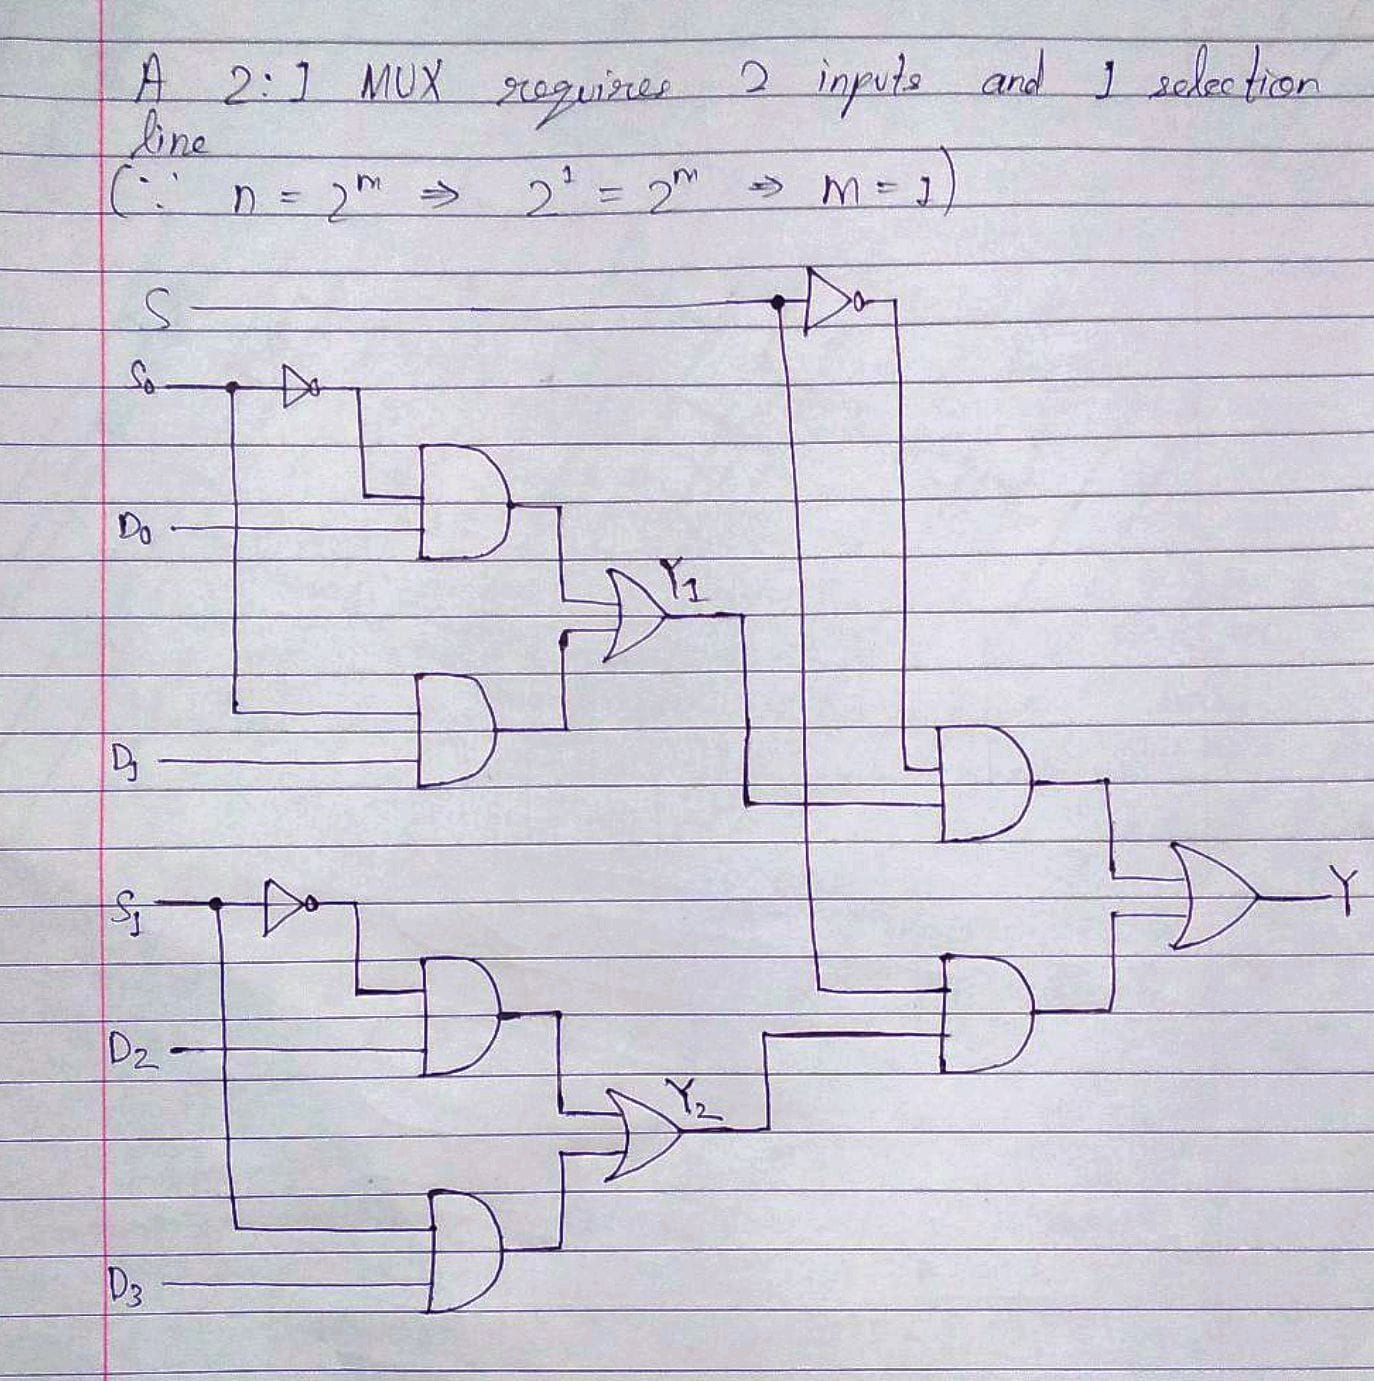 A 2:1 MUX requires 2 inputs and 1 selection
line
(∵ n = 2^m ⇒ 2^1 = 2^m ⇒ m = 1)
S
S₀
D₀
Y₁
D₁
S₁
Y
D₂
Y₂
D₃